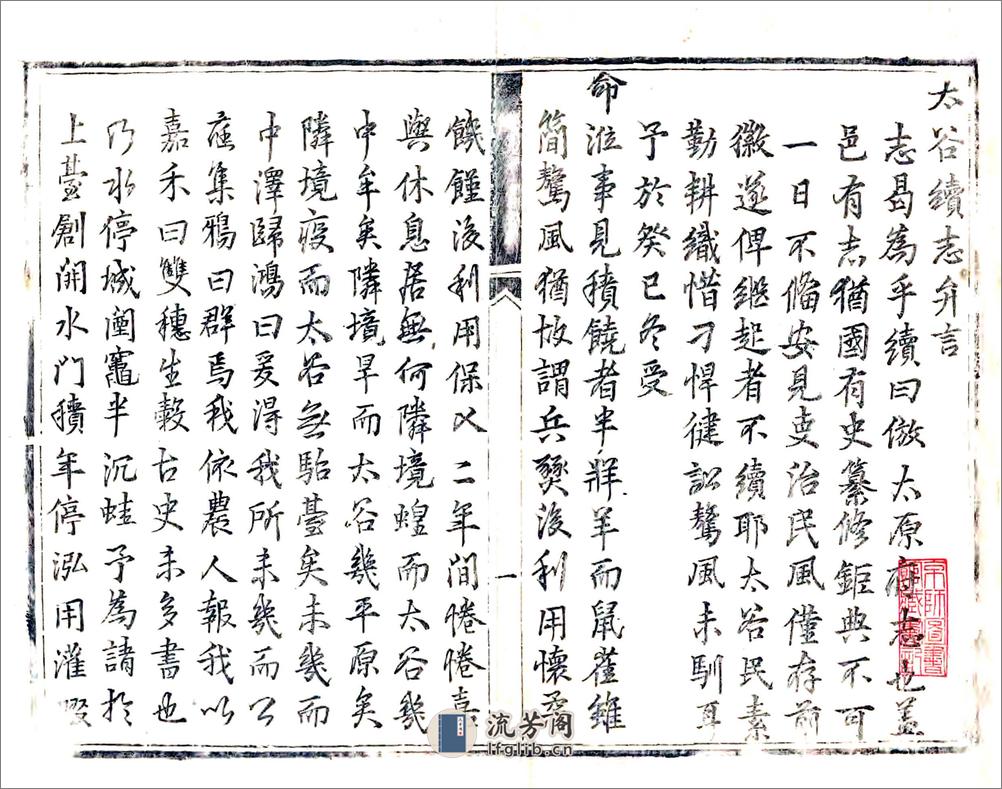 太谷續志弁言
志曷為乎續曰倣太原府志也蓋
邑有志猶國有史纂修鉅典不可
一日不脩安見吏治民風僅存前
徽遂俾繼起者不續耶太谷民素
勤耕織惜刁悍健訟驁風未馴耳
予於癸巳冬受
命涖事見積饒者半牂羊而鼠雀雖
簡驁風猶故謂兵燹後利用懷柔
饑饉後利用保乂二年間惓惓喜
與休息居無何隣境蝗而太谷幾
中牟矣隣境旱而太谷幾平原矣
隣境疫而太谷無駘薹矣未幾而
中澤歸鴻曰爰得我所未幾而公
庭集鴉曰群焉我依農人報我以
嘉禾曰雙穗生穀古史未多書也
乃水停城闉竈半沉蛙予為請於
上臺創開水門積年停泓用灌
一
京師圖書
流芳阁
lfglib.cn